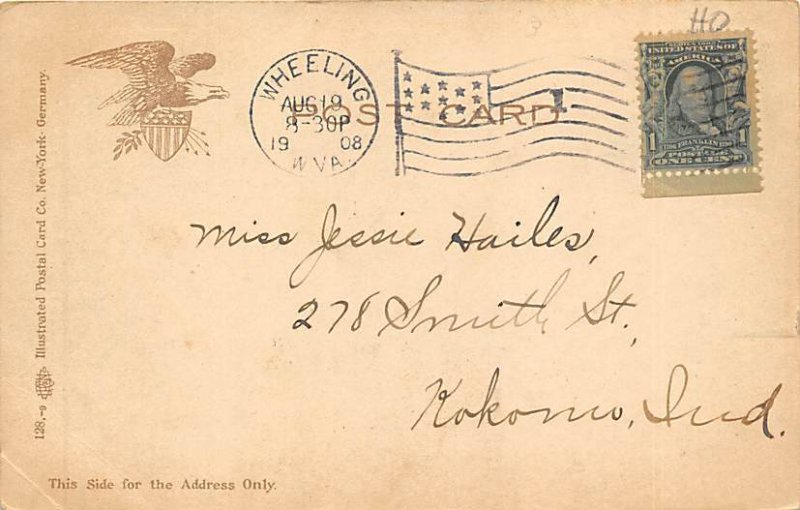 HO
WHEELING
AUG 19
8-30P
1908
W VA.
POST CARD
1
SERIES 1902
UNITED STATES OF
AMERICA
1706 FRANKLIN 1790
1 POSTAGE 1
ONE CENT
Miss Jessie Hailes,
278 Smith St.,
Kokomo, Ind.
128,-9 Illustrated Postal Card Co. New-York- Germany.
This Side for the Address Only.